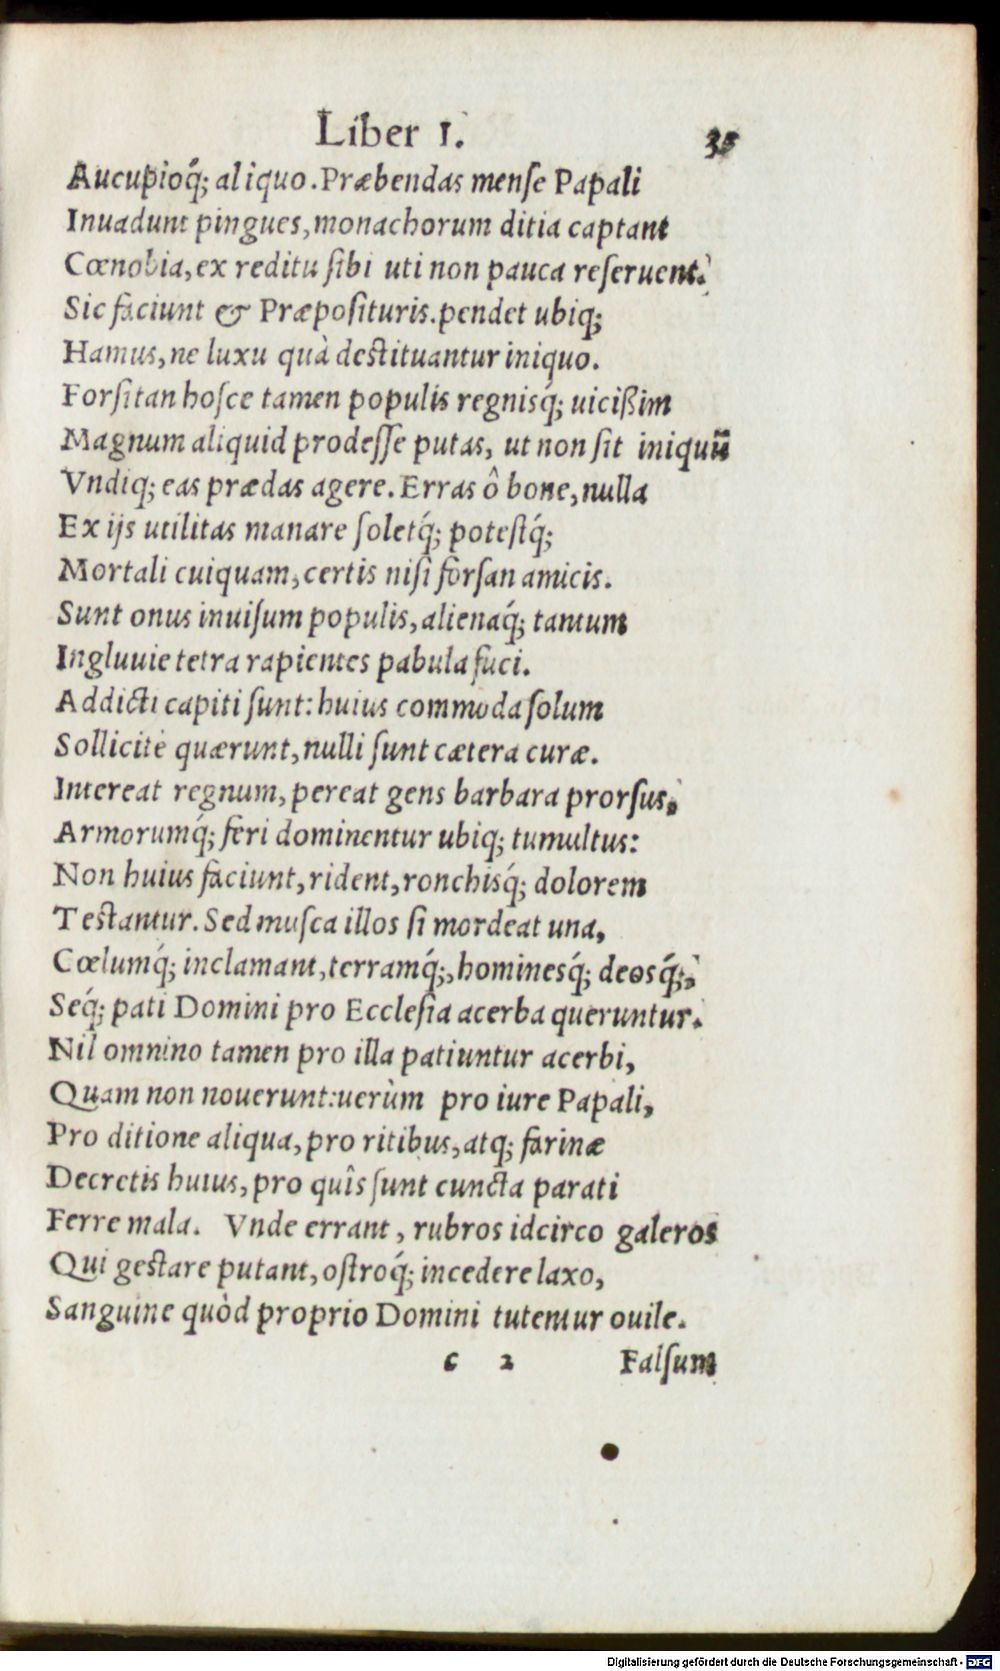 Liber 1. 35
Aucupioq́; aliquo. Præbendas menſe Papali
Inuadunt pingues, monachorum ditia captant
Cœnobia, ex reditu ſibi uti non pauca reſeruent.
Sic faciunt & Præpoſituris. pendet ubiq;
Hamus, ne luxu quà deſtituantur iniquo.
Forſitan hoſce tamen populis regnisq́; uicißim
Magnum aliquid prodeſſe putas, ut non ſit iniquũ
Vndiq; eas prædas agere. Erras ô bone, nulla
Ex ijs utilitas manare ſoletq́; poteſtq́;
Mortali cuiquam, certis niſi forſan amicis.
Sunt onus inuiſum populis, alienaq́; tantum
Ingluuie tetra rapientes pabula fuci.
Addicti capiti ſunt: huius commoda ſolum
Sollicitè quærunt, nulli ſunt cætera curæ.
Intereat regnum, pereat gens barbara prorſus,
Armorumq́; feri dominentur ubiq; tumultus:
Non huius faciunt, rident, ronchisq́; dolorem
Teſtantur. Sed muſca illos ſi mordeat una,
Cœlumq́; inclamant, terramq́;, hominesq́; deosq́;,
Seq́; pati Domini pro Eccleſia acerba queruntur.
Nil omnino tamen pro illa patiuntur acerbi,
Quam non nouerunt: uerùm pro iure Papali,
Pro ditione aliqua, pro ritibus, atq; farinæ
Decretis huius, pro quîs ſunt cuncta parati
Ferre mala. Vnde errant, rubros idcirco galeros
Qui geſtare putant, oſtroq́; incedere laxo,
Sanguine quòd proprio Domini tutentur ouile.
c 2 Falſum
Digitalisierung gefördert durch die Deutsche Forschungsgemeinschaft - DFG